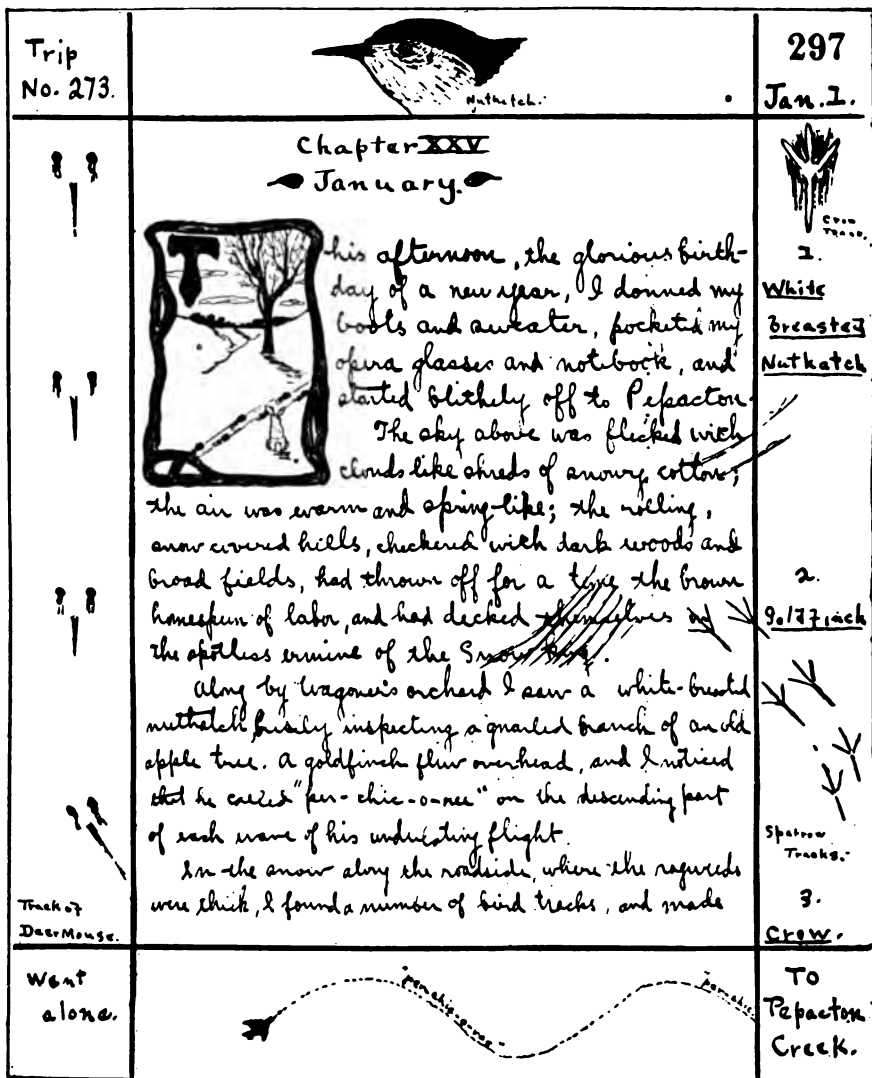 Trip
No. 273.
Nuthatch.
297
Jan. 1.
Chapter XXV
January.
This afternoon, the glorious birth-
day of a new year, I donned my
boots and sweater, pocketed my
opera glasses and notebook, and
started blithely off to Pepacton.
The sky above was flecked with
clouds like shreds of snowy cotton;
the air was warm and spring-like; the rolling,
snow covered hills, checkered with dark woods and
broad fields, had thrown off for a time the brown
homespun of labor, and had decked themselves in
the spotless ermine of the Snow King.
Along by Wagoner's orchard I saw a white-breasted
nuthatch busily inspecting a gnarled branch of an old
apple tree. A goldfinch flew overhead, and I noticed
that he called "per-chic-o-ree" on the descending part
of each wave of his undulating flight.
In the snow along the roadside, where the ragweeds
were thick, I found a number of bird tracks, and made
Crow
Track.
1.
White
Breasted
Nuthatch
2.
Goldfinch
Sparrow
Tracks.
3.
Crow.
Track of
Deer Mouse.
Went
alone.
"per chic o ree"
"per chic
To
Pepacton
Creek.